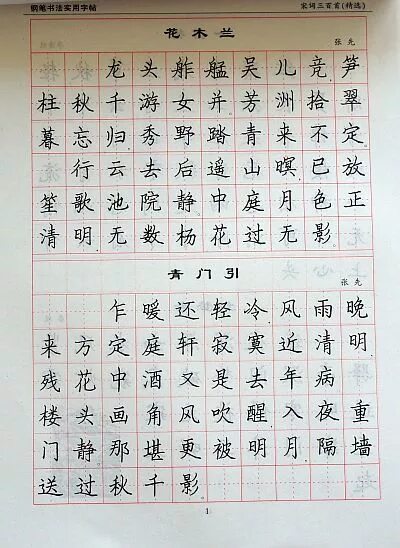 钢笔书法实用字帖 宋词三百首(精选)
花木兰
张先
龙头舴艋吴儿竞笋
柱秋千游女并芳洲拾翠
暮忘归秀野踏青来不定
行云去后遥山暝已放
笙歌池院静。中庭月色正
清明无数杨花过无影。
青门引
张先
乍暖还轻冷风雨晚
来方定庭轩寂寞近清明
残花中酒又是去年病
楼头画角风吹醒入夜重
门静。那堪更被明月隔墙
送过秋千影
1